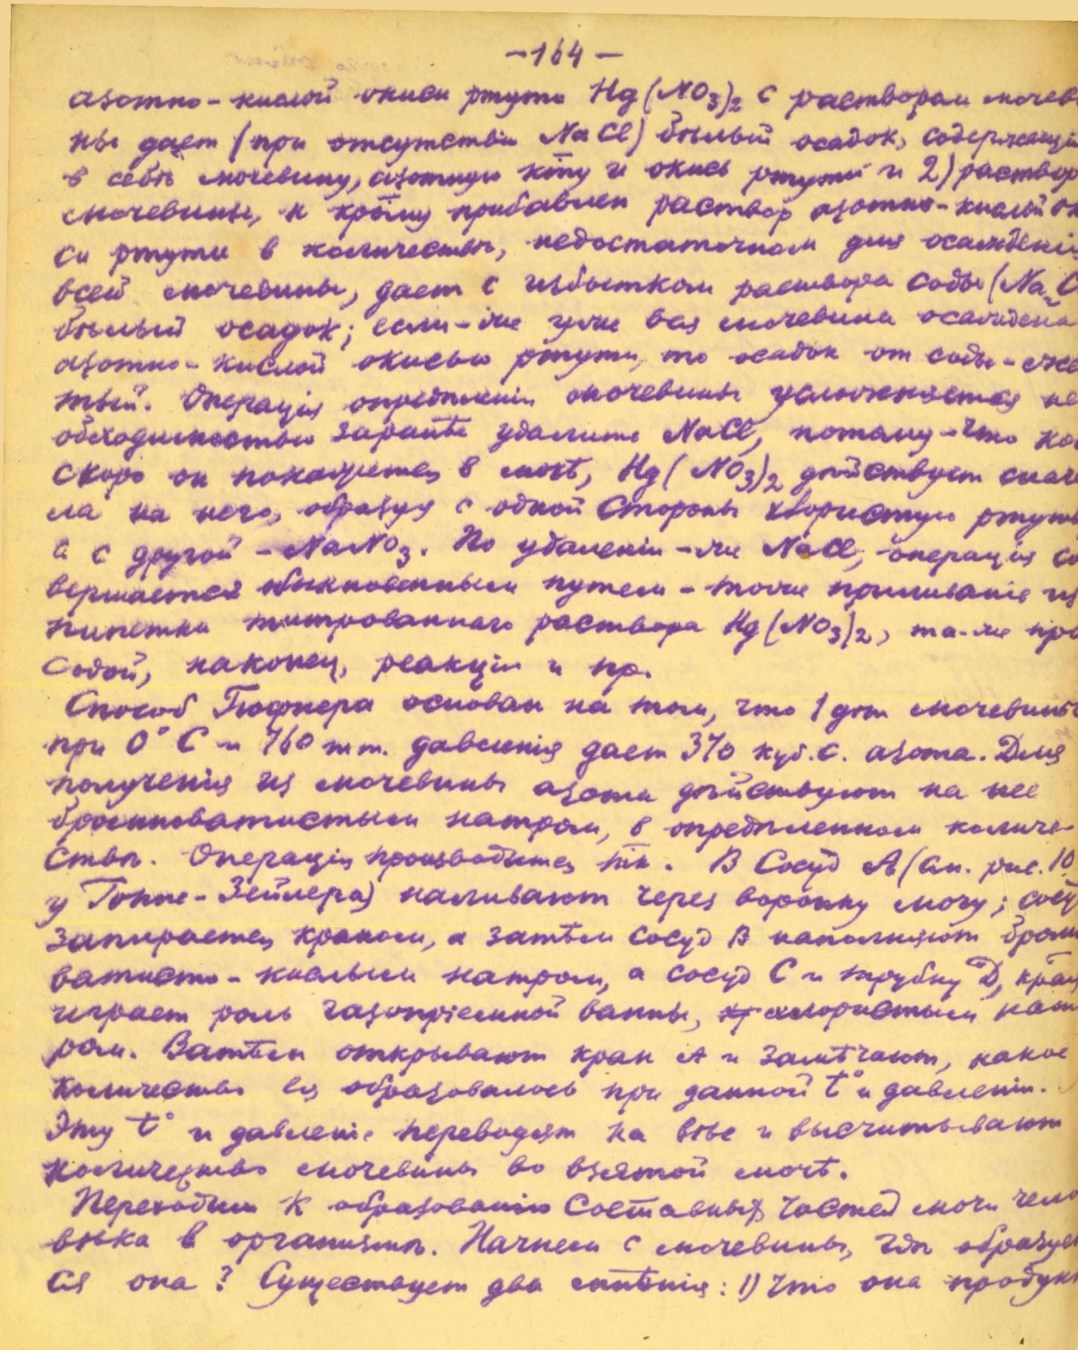 -164-
азотно-кислой окиси ртути Hg(NO3)2 с раствором мочеви
ны дает (при отсутствіи NaCl) бѣлый осадок, содержащій
в себѣ мочевину, азотную к-ту и окись ртути и 2) раствор
мочевины, к к-рому прибавлен раствор азотно-кислой ок
си ртути в количествѣ, недостаточном для осажденія
всей мочевины, дает с избытком раствора соды (Na2C
бѣлый осадок; если-же уже вся мочевина осаждена
азотно-кислой окисью ртути, то осадок от соды-же
тый. Операція опредѣленія мочевины усложняется не
обходимостью заранѣе удалить NaCl, потому-что ко
скоро он покажется в мочѣ, Hg(NO3)2 дѣйствует снача
ла на него, образуя с одной стороны хлористую ртуть
а с другой - NaNO3. По удаленіи-же NaCl, операція со
вершается обыкновенным путем - тоже приливаніе из
пипетки титрованнаго раствора Hg(NO3)2, та-же про
содой, наконец, реакція и пр.
Способ Гюфнера основан на том, что 1 gm мочевины
при 0° C и 760 mm. давленія дает 370 куб. с. азота. Для
полученія из мочевины азота дѣйствуют на нее
бромноватистым натром, в опредѣленном количе-
ствѣ. Операція производится так. В сосуд А (см. рис. 10
у Гоппе-Зейлера) наливают через воронку мочу; сосуд
запирается краном, а затѣм сосуд В наполняют бром
ватисто-кислым натром, а сосуд С и трубку D,
играет роль газопріемной ванны, хлористым нат
ром. Затѣм открывают кран А и замѣчают, какое
количество ея образовалось при данной t° и давленіи.
Эту t° и давленіе переводят на вѣс и высчитывают
количество мочевины во взятой мочѣ.
Переходим к образованію составных частей мочи чело
вѣка в организмѣ. Начнем с мочевины, гдѣ образует
ся она? Существует два мнѣнія: 1) что она продукт